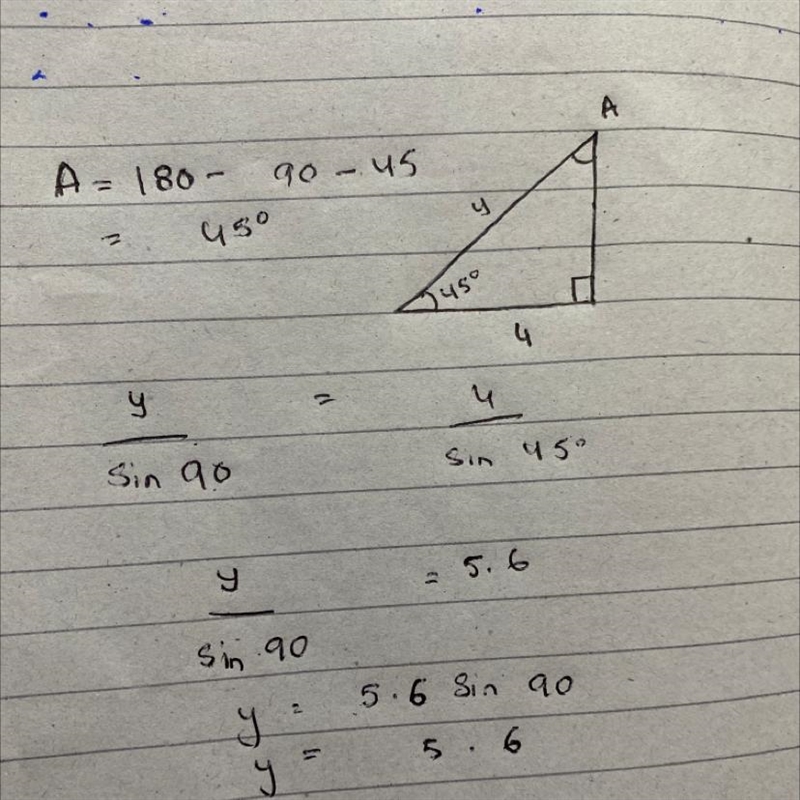 A
A = 180 - 90 - 45
= 45°
y
45°
4
y = 4
sin 90 sin 45°
y = 5.6
sin 90
y = 5.6 sin 90
y = 5.6